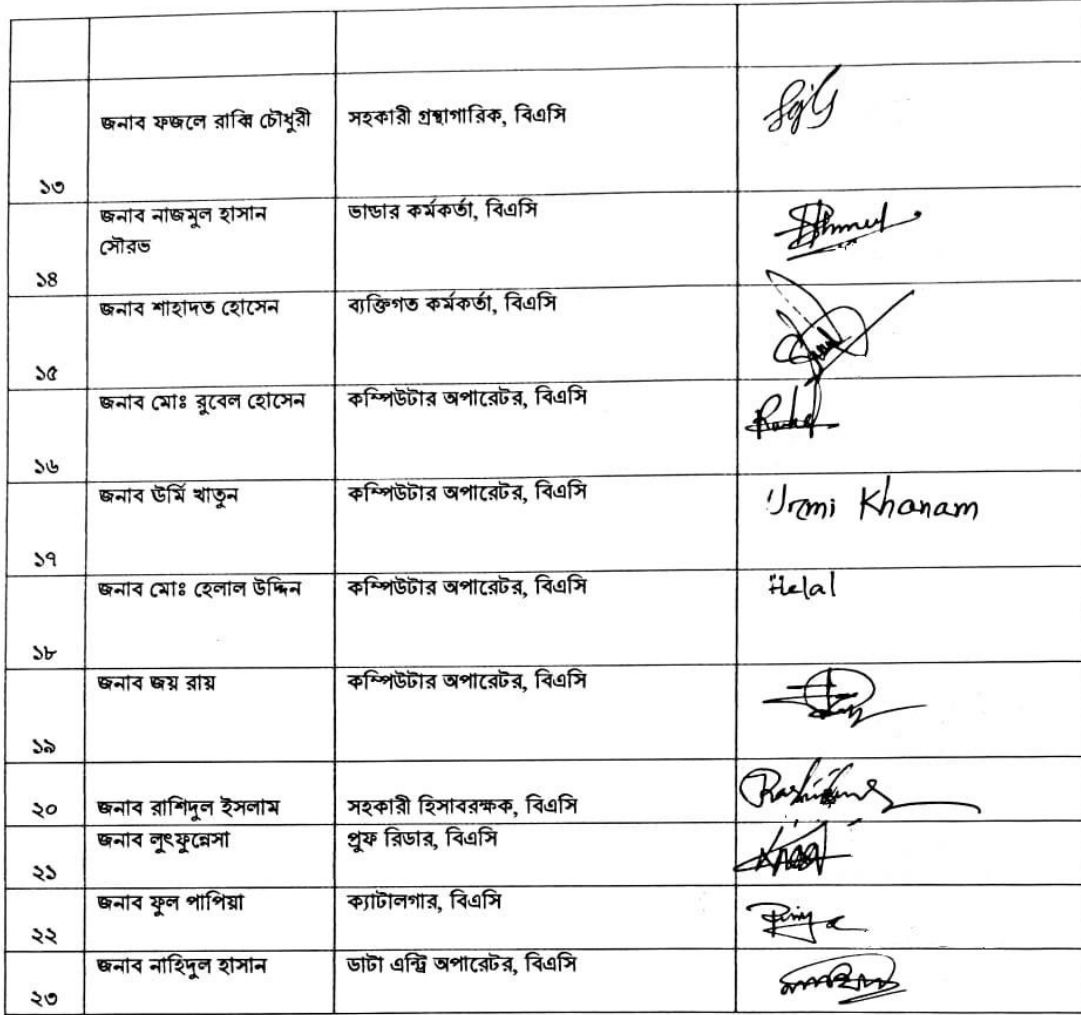 জনাব ফজলে রাব্বি চৌধুরী
সহকারী গ্রন্থাগারিক, বিএসি
১৩
জনাব নাজমুল হাসান
সৌরভ
ভান্ডার কর্মকর্তা, বিএসি
১৪
জনাব শাহাদত হোসেন
ব্যক্তিগত কর্মকর্তা, বিএসি
১৫
জনাব মোঃ রুবেল হোসেন
কম্পিউটার অপারেটর, বিএসি
১৬
জনাব ঊর্মি খাতুন
কম্পিউটার অপারেটর, বিএসি
Urmi Khanam
১৭
জনাব মোঃ হেলাল উদ্দিন
কম্পিউটার অপারেটর, বিএসি
Helal
১৮
জনাব জয় রায়
কম্পিউটার অপারেটর, বিএসি
১৯
২০ জনাব রাশিদুল ইসলাম সহকারী হিসাবরক্ষক, বিএসি
জনাব লুৎফুন্নেসা
প্রুফ রিডার, বিএসি
২১
জনাব ফুল পাপিয়া
ক্যাটালগার, বিএসি
২২
জনাব নাহিদুল হাসান
ডাটা এন্ট্রি অপারেটর, বিএসি
২৩